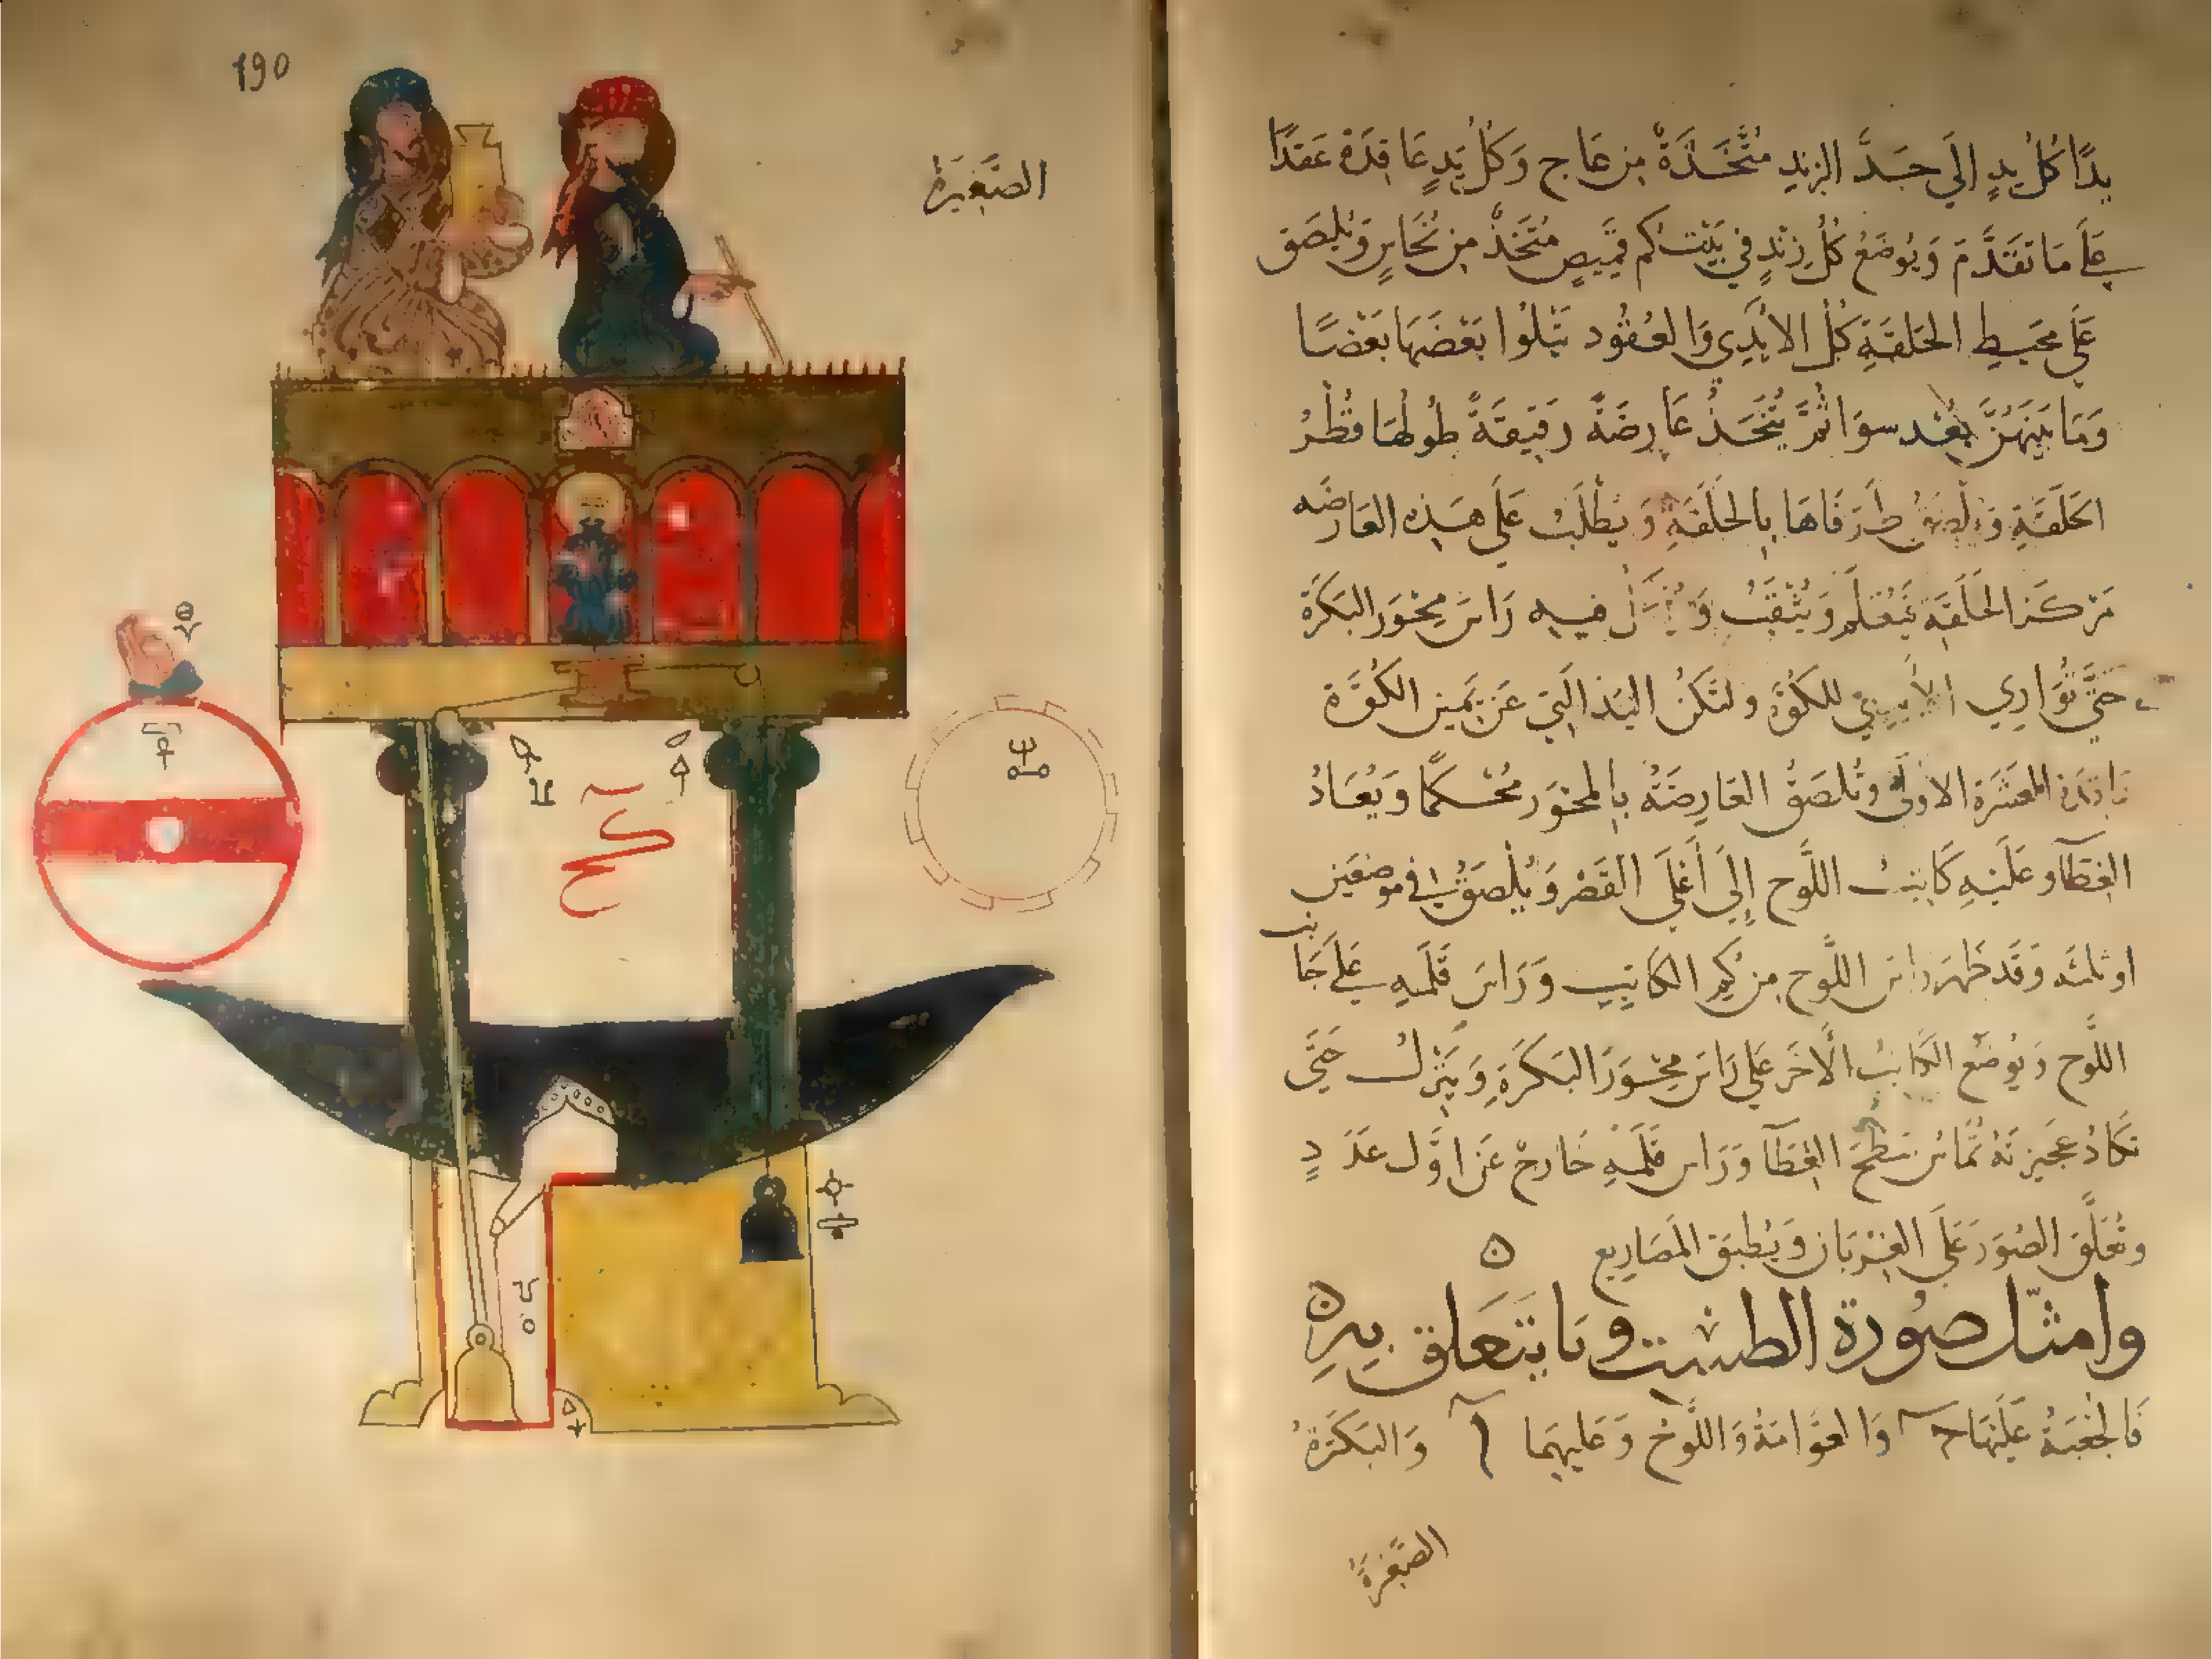 يدًا كُلُ يدٍ الَي حَدَّ الزندِ مُتَّخَذَةٌ مِن عَاجٍ وَكُلُ يَدٍ عَاقِدَةٌ عَقدًا
عَلَي مَا تقَدَّمَ وَيُوضَعُ كُلُ زندٍ في بَيت كم قَمِيصٍ مُتَخَذٌ مِن نُحَاسٍ وَيُلصَق
عَلَي محيطِ الحَلقَةِ كُلُ الأيْدِي وَالعُقُود تَتْلُوا بَعْضَهَا بَعْضًا
وَمَا بَينَهُنَّ بُعْد سوَا ثُمَّ يُتَّخَذُ عَارِضَةً رَقيقَةً طُولُهَا قُطْرُ
الحَلقَةِ وَيُلصَقُ طَرَفَاهَا بِالحَلقَةِ وَيُطلَبُ عَلَي هَذِه العَارضَه
مَرْكَز الحَلَقَةِ فَيُعَلَّم وَيُثقَبُ وَيُنزَلُ فيهِ رَاسَ مِحْوَر البَكرَةِ
حَتَّي تُوَازِي الأيدِي للكُوَّة ولتَكُن اليَد التَي عَن يَمين الكُوَّة
عَاقدَة العَشَرَة الاولَي وتُلصَقُ العَارِضَةُ بالمحوَر مُحْكَمًا وَيُعَادُ
الغِطَآ وعَلَيْهِ كَاتبُ اللَّوح إِلَي أَعْلَي القَصْر وَيُلصَقُ في موضعَين
او ثلثه وَقَد ظهَرَ رَاسَ اللَّوح مِن كُم الكَاتِبِ وَرَاسَ قَلَمهِ عَلَي جَانب
اللَّوح وَيُوضَع الكَاتبُ الآخَر عَلي رَاسَ محْوَر البَكرَةِ وَيَنْزِلُ حَتَّي
تكَادُ عَجِيزَتهُ تُمَاسُ سَطحَ الغِطَآ وَرَاس قَلَمهِ خَارِجٌ عَن اوَّل عَدَدٍ
وتُعَلَّق الصُوَر عَلَي الغِرْبَان وَيُطبَق المَصَاريع ٥
وامثل صُورة الطست وما يتعَلق بِهِ ٥
فَالجُعْبَةُ عَلَيْهَا حـ وَالعَوَّامَةُ وَاللَّوحُ وَعَليهِمَا آ وَالبَكَرَةُ
الصَّغِيرَةُ
190
الصَّغِيَرةُ